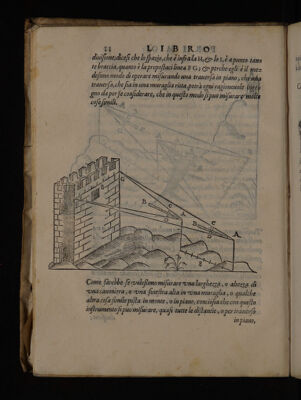 LIBRO
diuisione, dicesi che lo spazio, che è infra la H, & lo I, è a punto tan-
te braccia, quanto è la prepostaci linea F G; & perche egli è il me-
desimo modo di operare misurando una trauersa in piano, che una
trauersa, che sia in una muraglia ritta, potrà ogni ragioneuole
gno da per se considerare, che in questo modo si può misurare molte
cose simili.
C
B
A
C
B
A
Come sarebbe se uolessimo misurare una larghezza, o altezza di
una cannoniera, o una finestra alta in una muraglia, o qualche
altra cosa simile posta in monte, o in piano, conciosia che con questo
instrumento si può misurare, quasi tutte le distantie, o per trauerso
in piano,